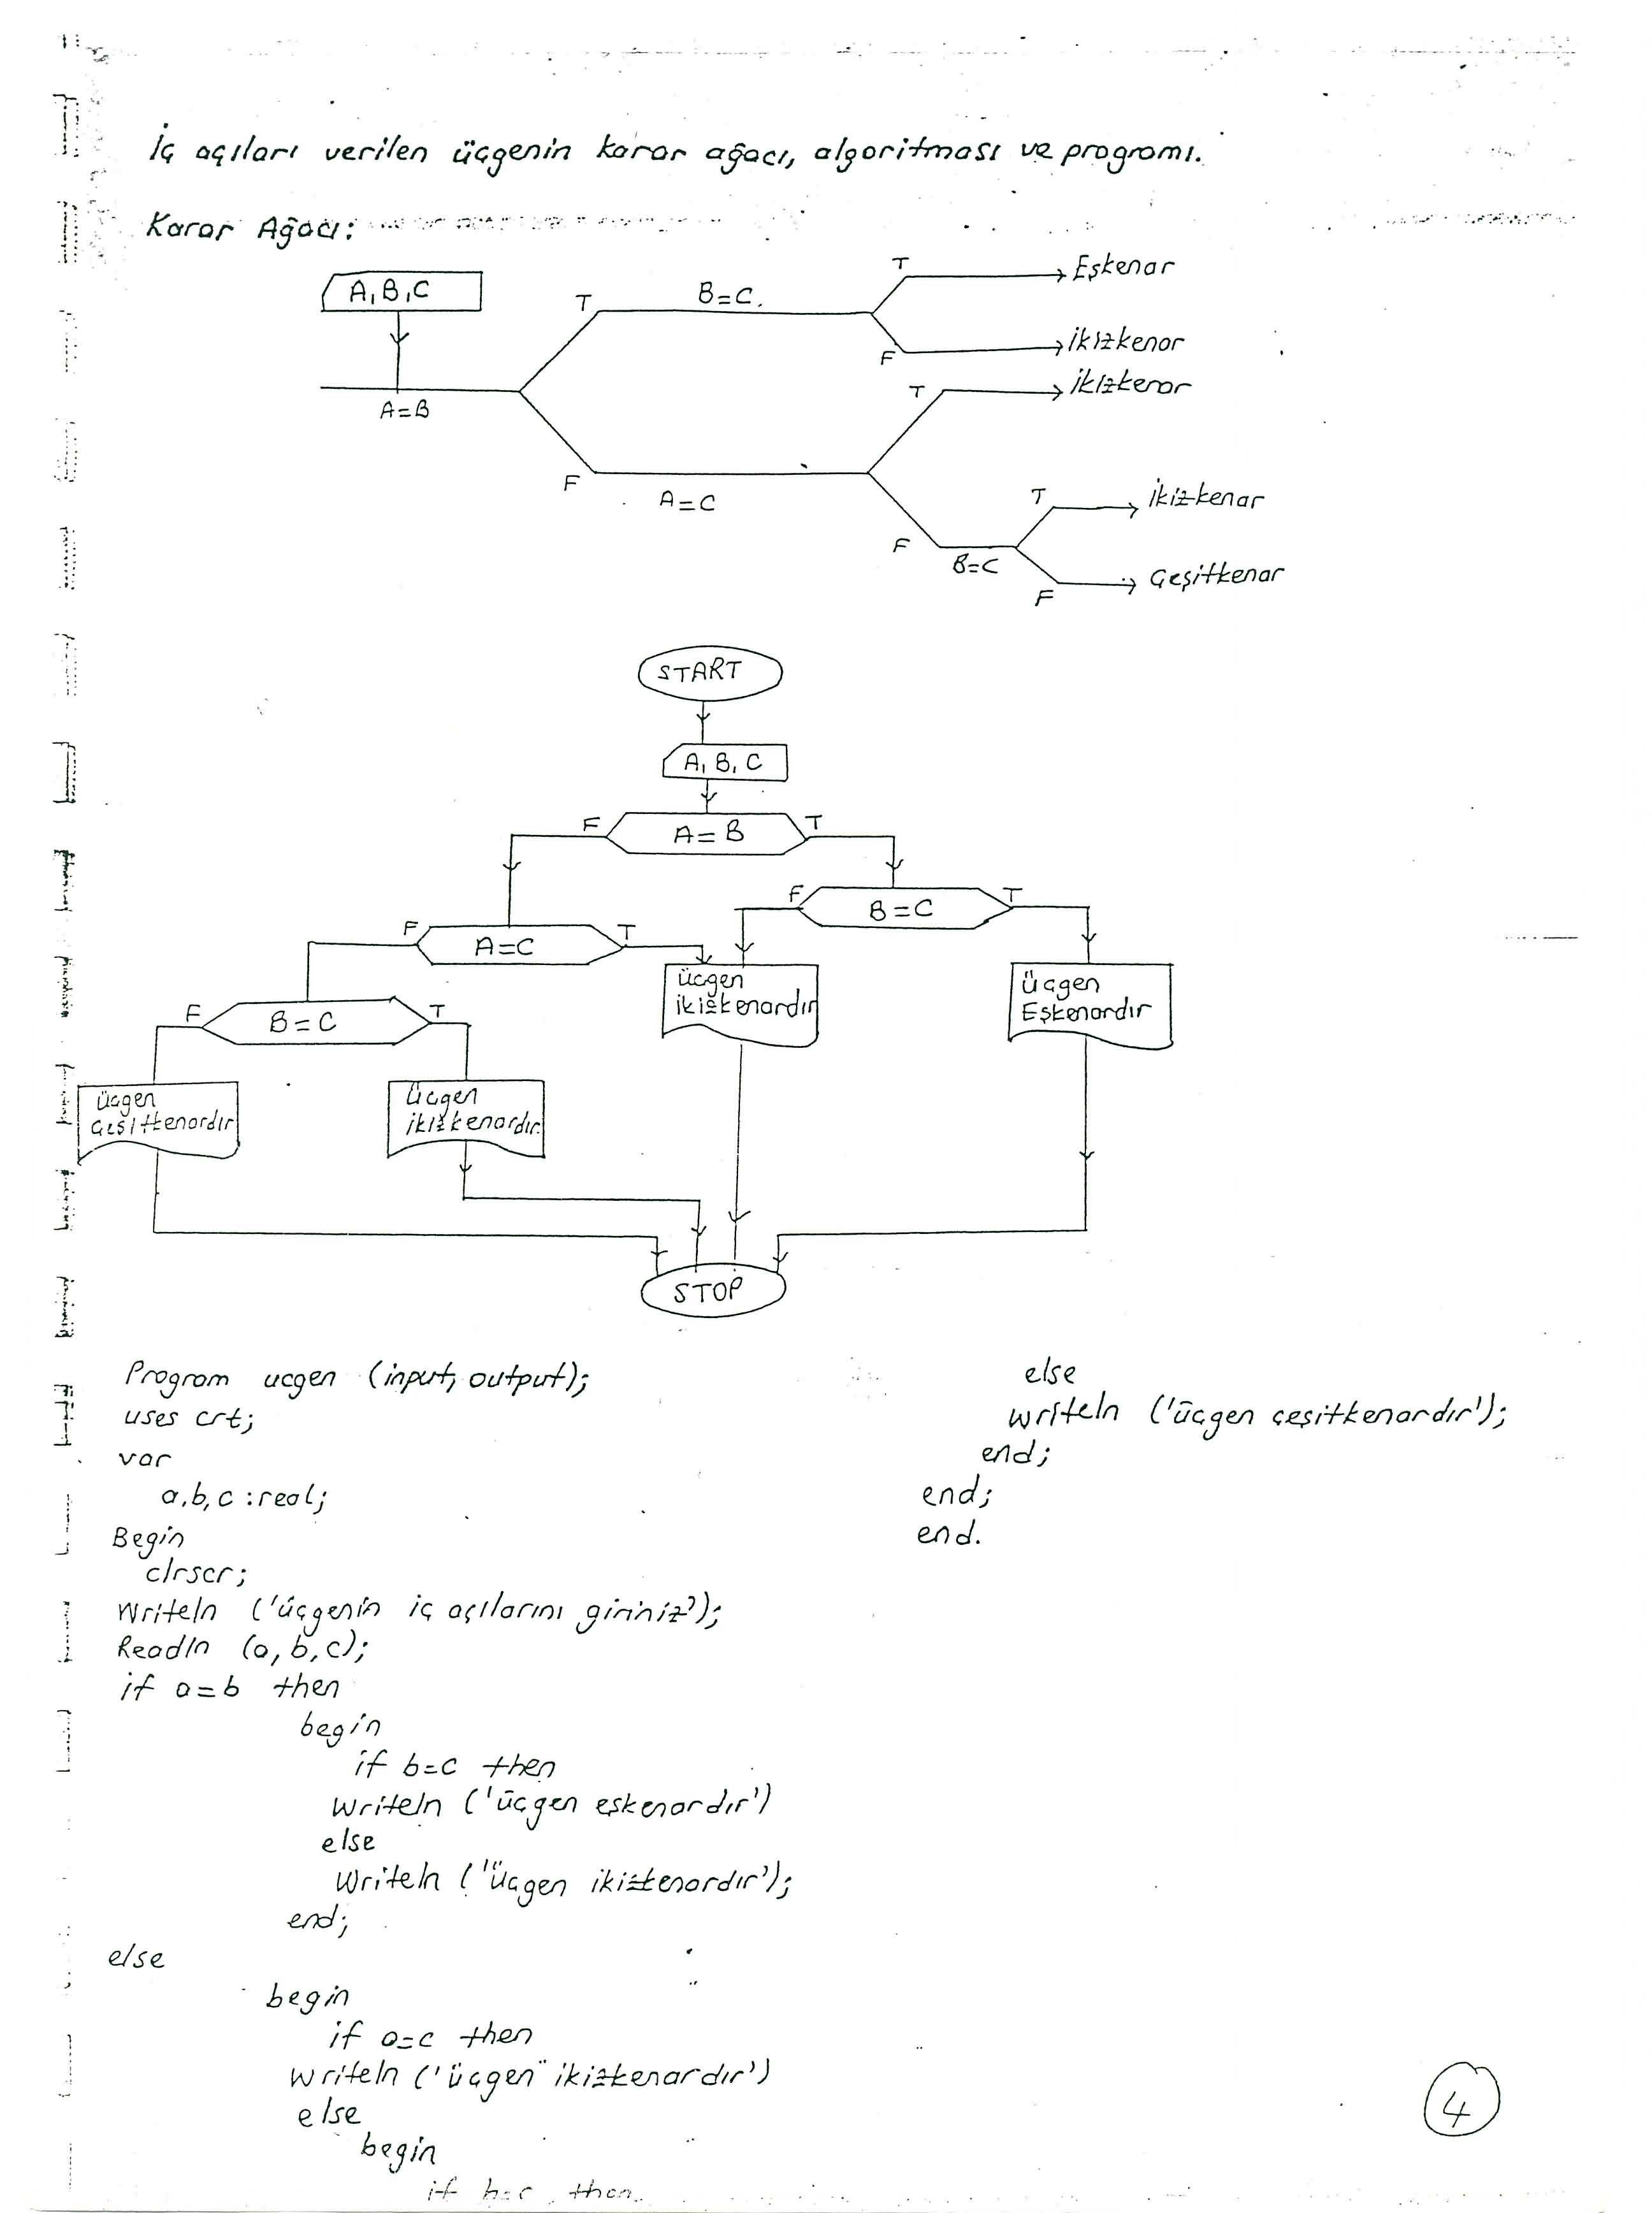 İç açıları verilen üçgenin karar ağacı, algoritması ve programı.
Karar Ağacı:
A, B, C
A=B
T
B=C.
T
Eşkenar
F
ikizkenar
F
A=C
T
ikizkenar
F
B=C
T
ikizkenar
F
Çeşitkenar
START
A, B, C
F
A=B
T
F
B=C
T
F
A=C
T
üçgen
ikizkenardır
üçgen
Eşkenardır
F
B=C
T
üçgen
Çeşitkenardır
üçgen
ikizkenardır.
STOP
Program ucgen (input, output);
uses crt;
var
a,b,c :real;
Begin
clrscr;
Writeln ('üçgenin iç açılarını giriniz');
Readln (a, b, c);
if a=b then
begin
if b=c then
Writeln ('üçgen eşkenardır')
else
Writeln ('Üçgen ikizkenardır');
end;
else
begin
if a=c then
Writeln ('üçgen ikizkenardır')
else
begin
if b=c then
else
writeln ('üçgen çeşitkenardır');
end;
end;
end.
4